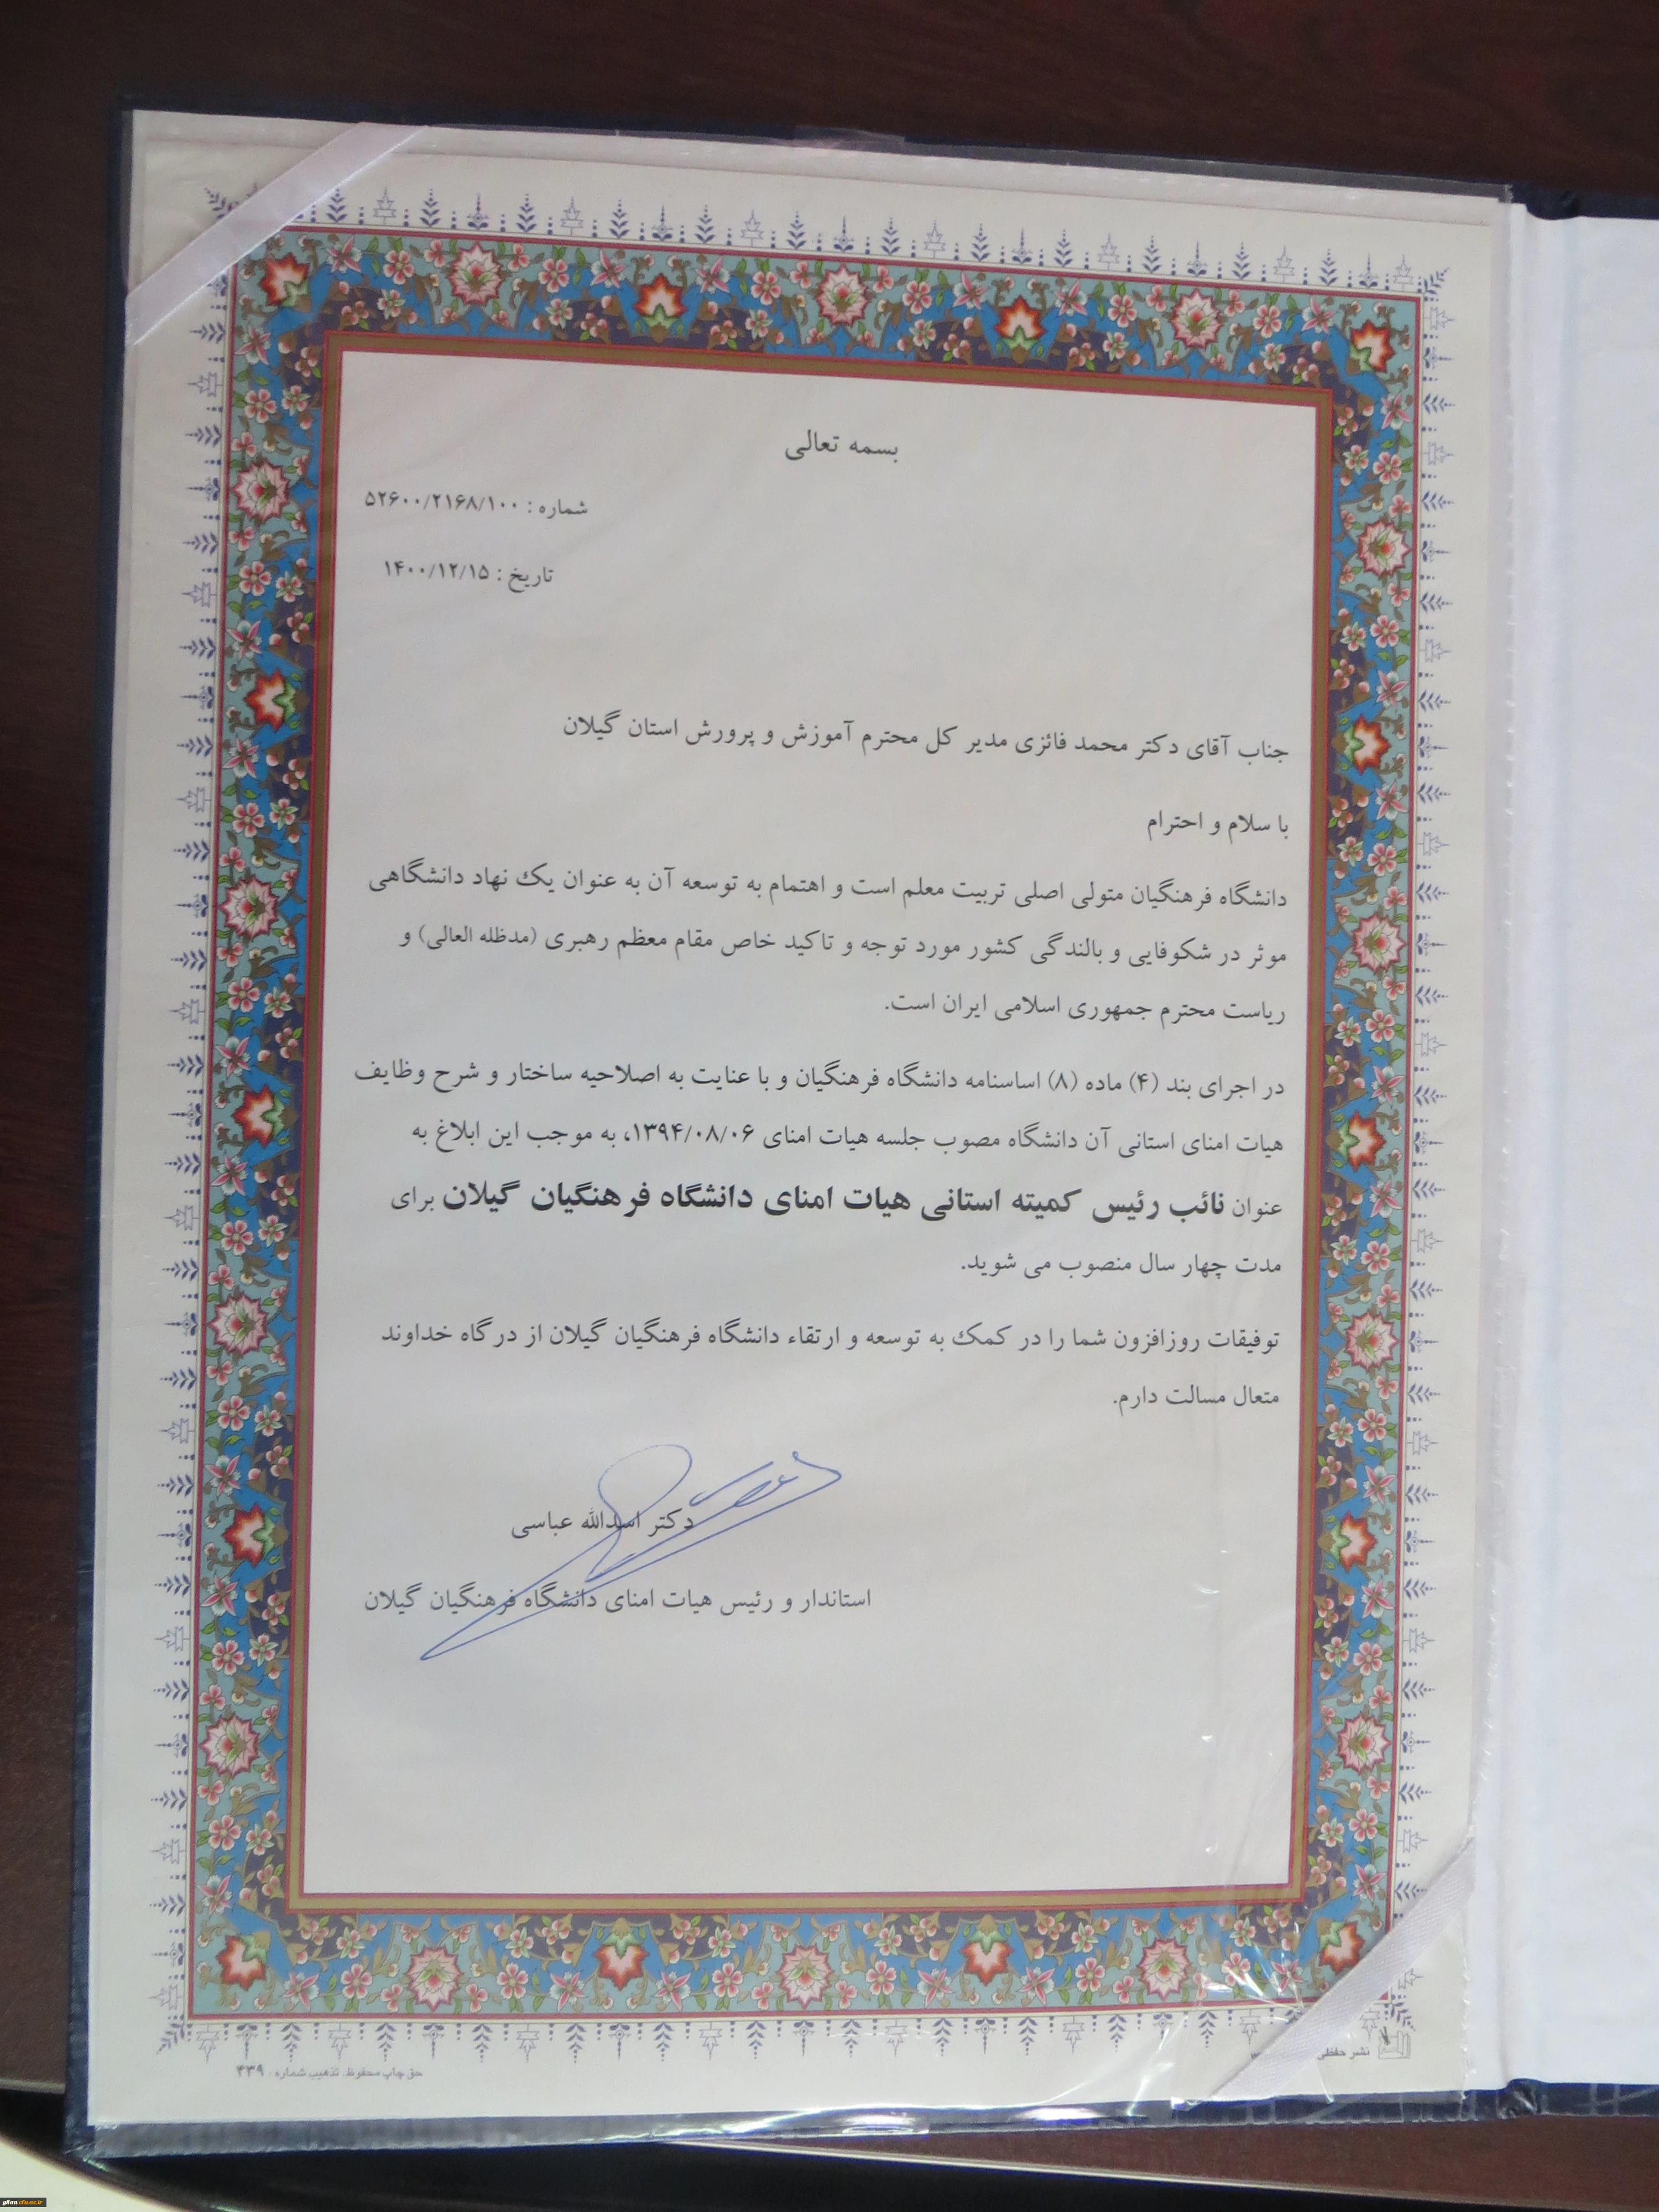 بسمه تعالی
شماره : ۵۲۶۰۰/۲۱۶۸/۱۰۰
تاریخ : ۱۴۰۰/۱۲/۱۵
جناب آقای دکتر محمد فائزی مدیر کل محترم آموزش و پرورش استان گیلان
با سلام و احترام
دانشگاه فرهنگیان متولی اصلی تربیت معلم است و اهتمام به توسعه آن به عنوان یک نهاد دانشگاهی
موثر در شکوفایی و بالندگی کشور مورد توجه و تاکید خاص مقام معظم رهبری (مدظله العالی) و
ریاست محترم جمهوری اسلامی ایران است.
در اجرای بند (۴) ماده (۸) اساسنامه دانشگاه فرهنگیان و با عنایت به اصلاحیه ساختار و شرح وظایف
هیات امنای استانی آن دانشگاه مصوب جلسه هیات امنای ۱۳۹۴/۰۸/۰۶، به موجب این ابلاغ به
عنوان نائب رئیس کمیته استانی هیات امنای دانشگاه فرهنگیان گیلان برای
مدت چهار سال منصوب می شوید.
توفیقات روزافزون شما را در کمک به توسعه و ارتقاء دانشگاه فرهنگیان گیلان از درگاه خداوند
متعال مسالت دارم.
دکتر اسدالله عباسی
استاندار و رئیس هیات امنای دانشگاه فرهنگیان گیلان
نشر حفظی
حق چاپ محفوظ. تذهیب شماره : ۴۳۹
gilan.cfu.ac.ir